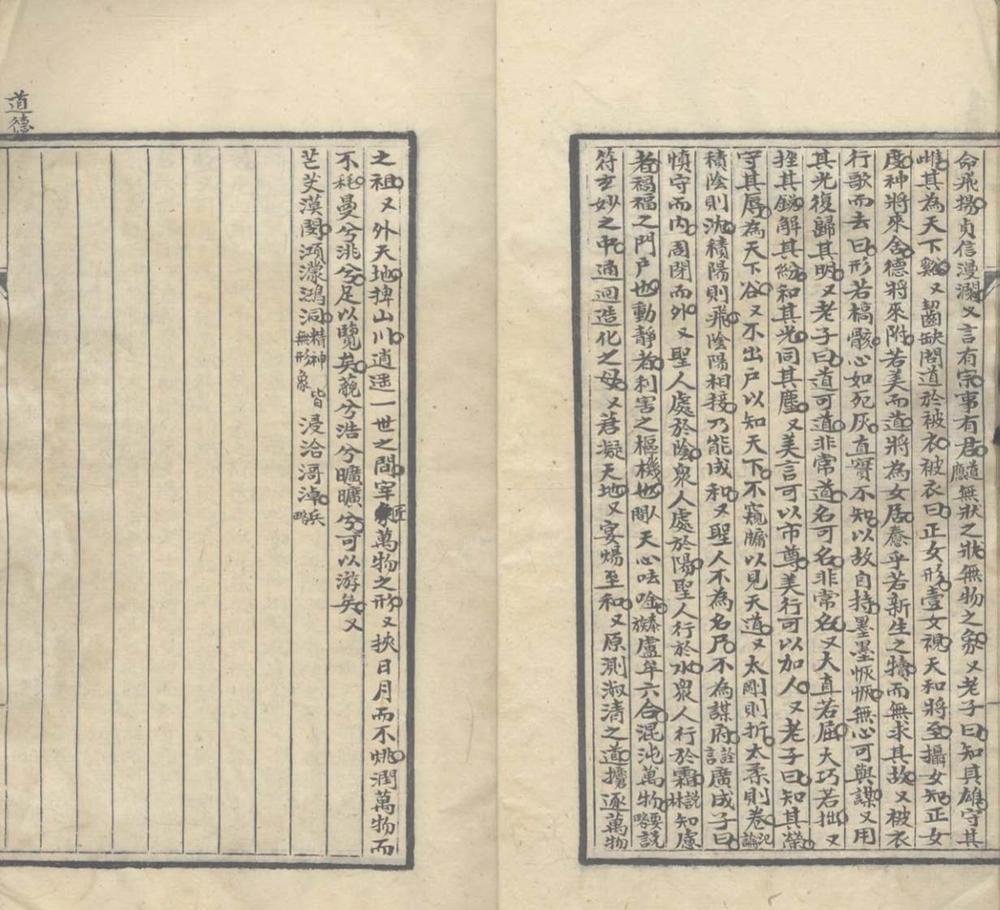 命飛揚貞信漫瀾又言有宗事有君道應無狀之狀無物之象又老子曰知其雄守其
雌其為天下谿又齧缺問道於被衣被衣曰正女形壹女視天和將至攝女知正女
度神將來舍德將來附若美而道將為女居惷乎若新生之犢而無求其故又被衣
行歌而去曰形若槁骸心如死灰直實不知以故自持墨墨恢恢無心可與謀又用
其光復歸其明又老子曰道可道非常道名可名非常名又大直若屈大巧若拙又
挫其銳解其紛和其光同其塵又美言可以市尊美行可以加人又老子曰知其榮
守其辱為天下谷又不出戶以知天下不窺牖以見天道又太剛則折太柔則卷氾論
積陰則沈積陽則飛陰陽相接乃能成和又聖人不為名尸不為謀府詮言廣成子曰
慎守而內周閉而外又聖人處於陰衆人處於陽聖人行於水衆人行於霜說林知慮
者禍福之門戶也動靜者利害之樞機也人間天心呿唫泰族盧牟六合混沌萬物要略說
符玄妙之中通迴造化之母又莙凝天地又宴煬至和又原測淑清之道攟逐萬物
之祖又外天地捭山川逍遙一世之間宰匠萬物之形又挾日月而不烑潤萬物而
不耗曼兮洮兮足以覽矣藐兮浩兮曠曠兮可以游矣又
芒芠漠閔澒濛鴻洞精神無形象皆浸洽滒淖兵略
道德